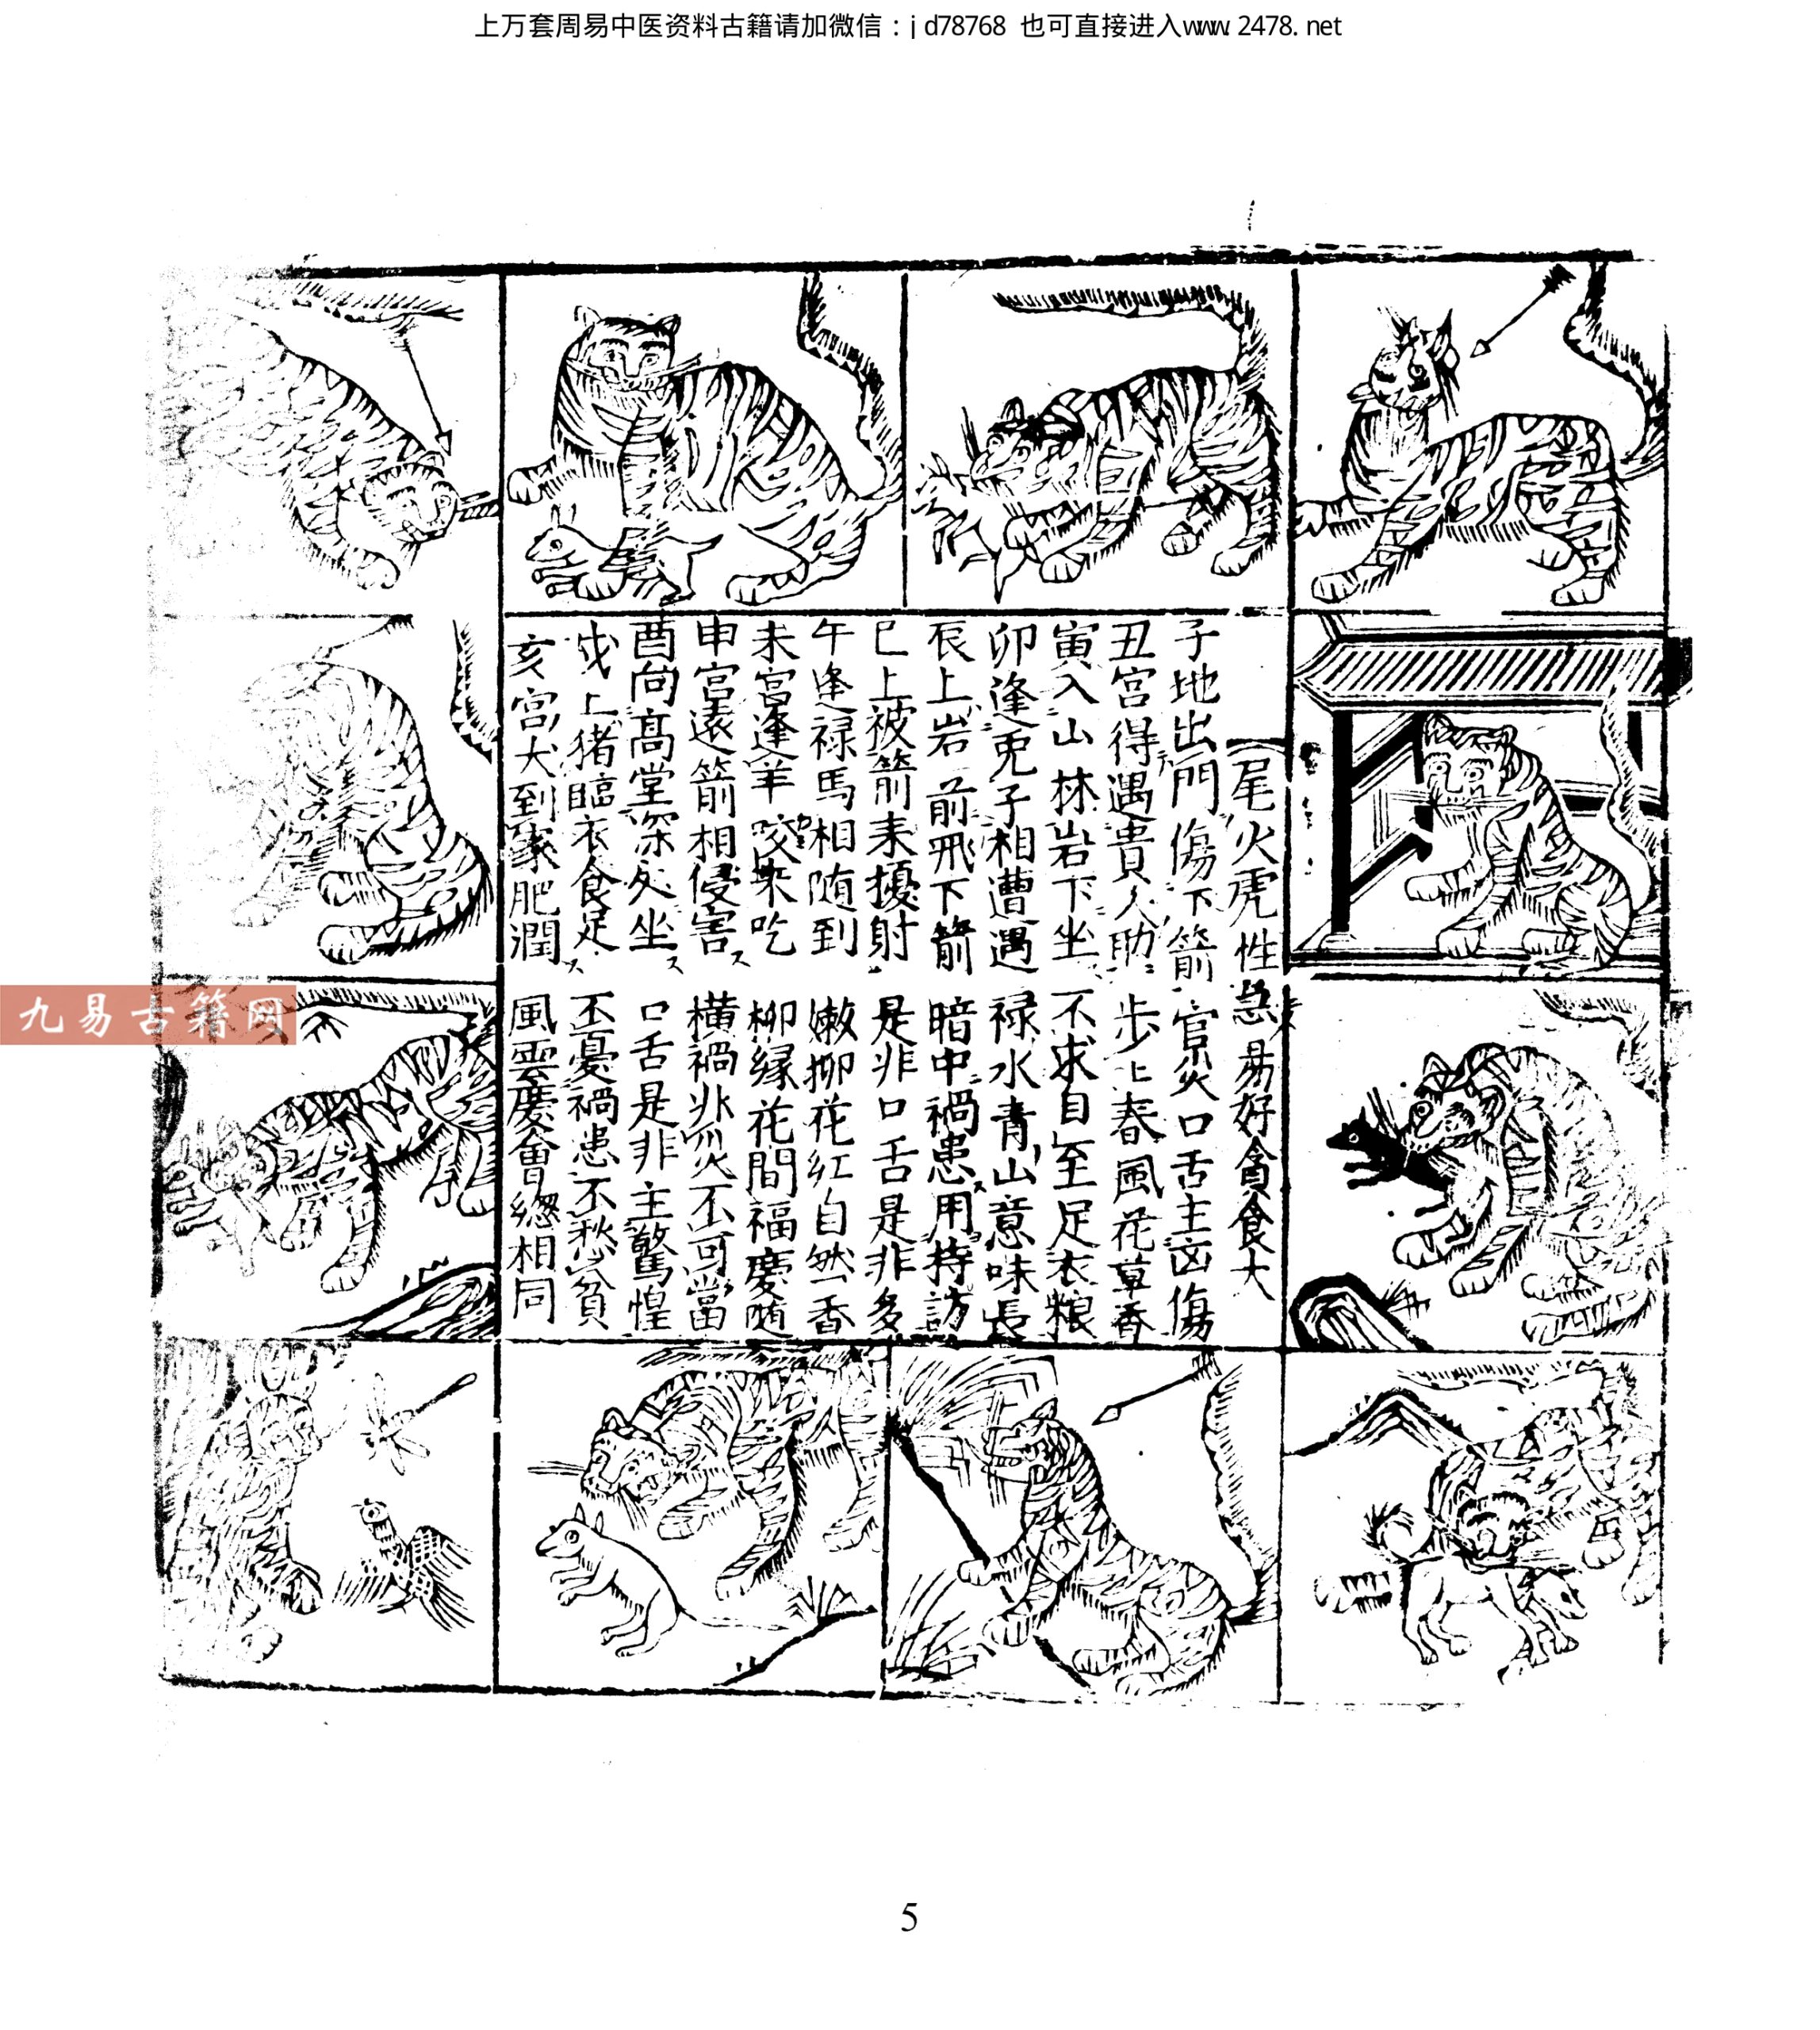 上万套周易中医资料古籍请加微信：jd78768 也可直接进入www.2478.net
尾火虎性急 易好貪食大
子地出門傷下箭 官災口舌主凶傷
丑宮得遇貴人助 步上春風花草香
寅入山林岩下坐 不求自至足衣粮
卯逢兎子相遭遇 禄水青山意味長
辰上岩前飛下箭 暗中禍患用持訪
巳上被箭来擾射 是非口舌是非多
午逢禄馬相随到 嫩柳花紅自然香
未宮逢羊咬来吃 柳緣花間福慶隨
申宮遠箭相侵害 橫禍非災不可當
酉向高堂深処坐 口舌是非主驚惶
戌上猪臨衣食足 丕憂禍患不愁貧
亥宮犬到家肥潤 風雲慶會總相同
九易古籍网
5